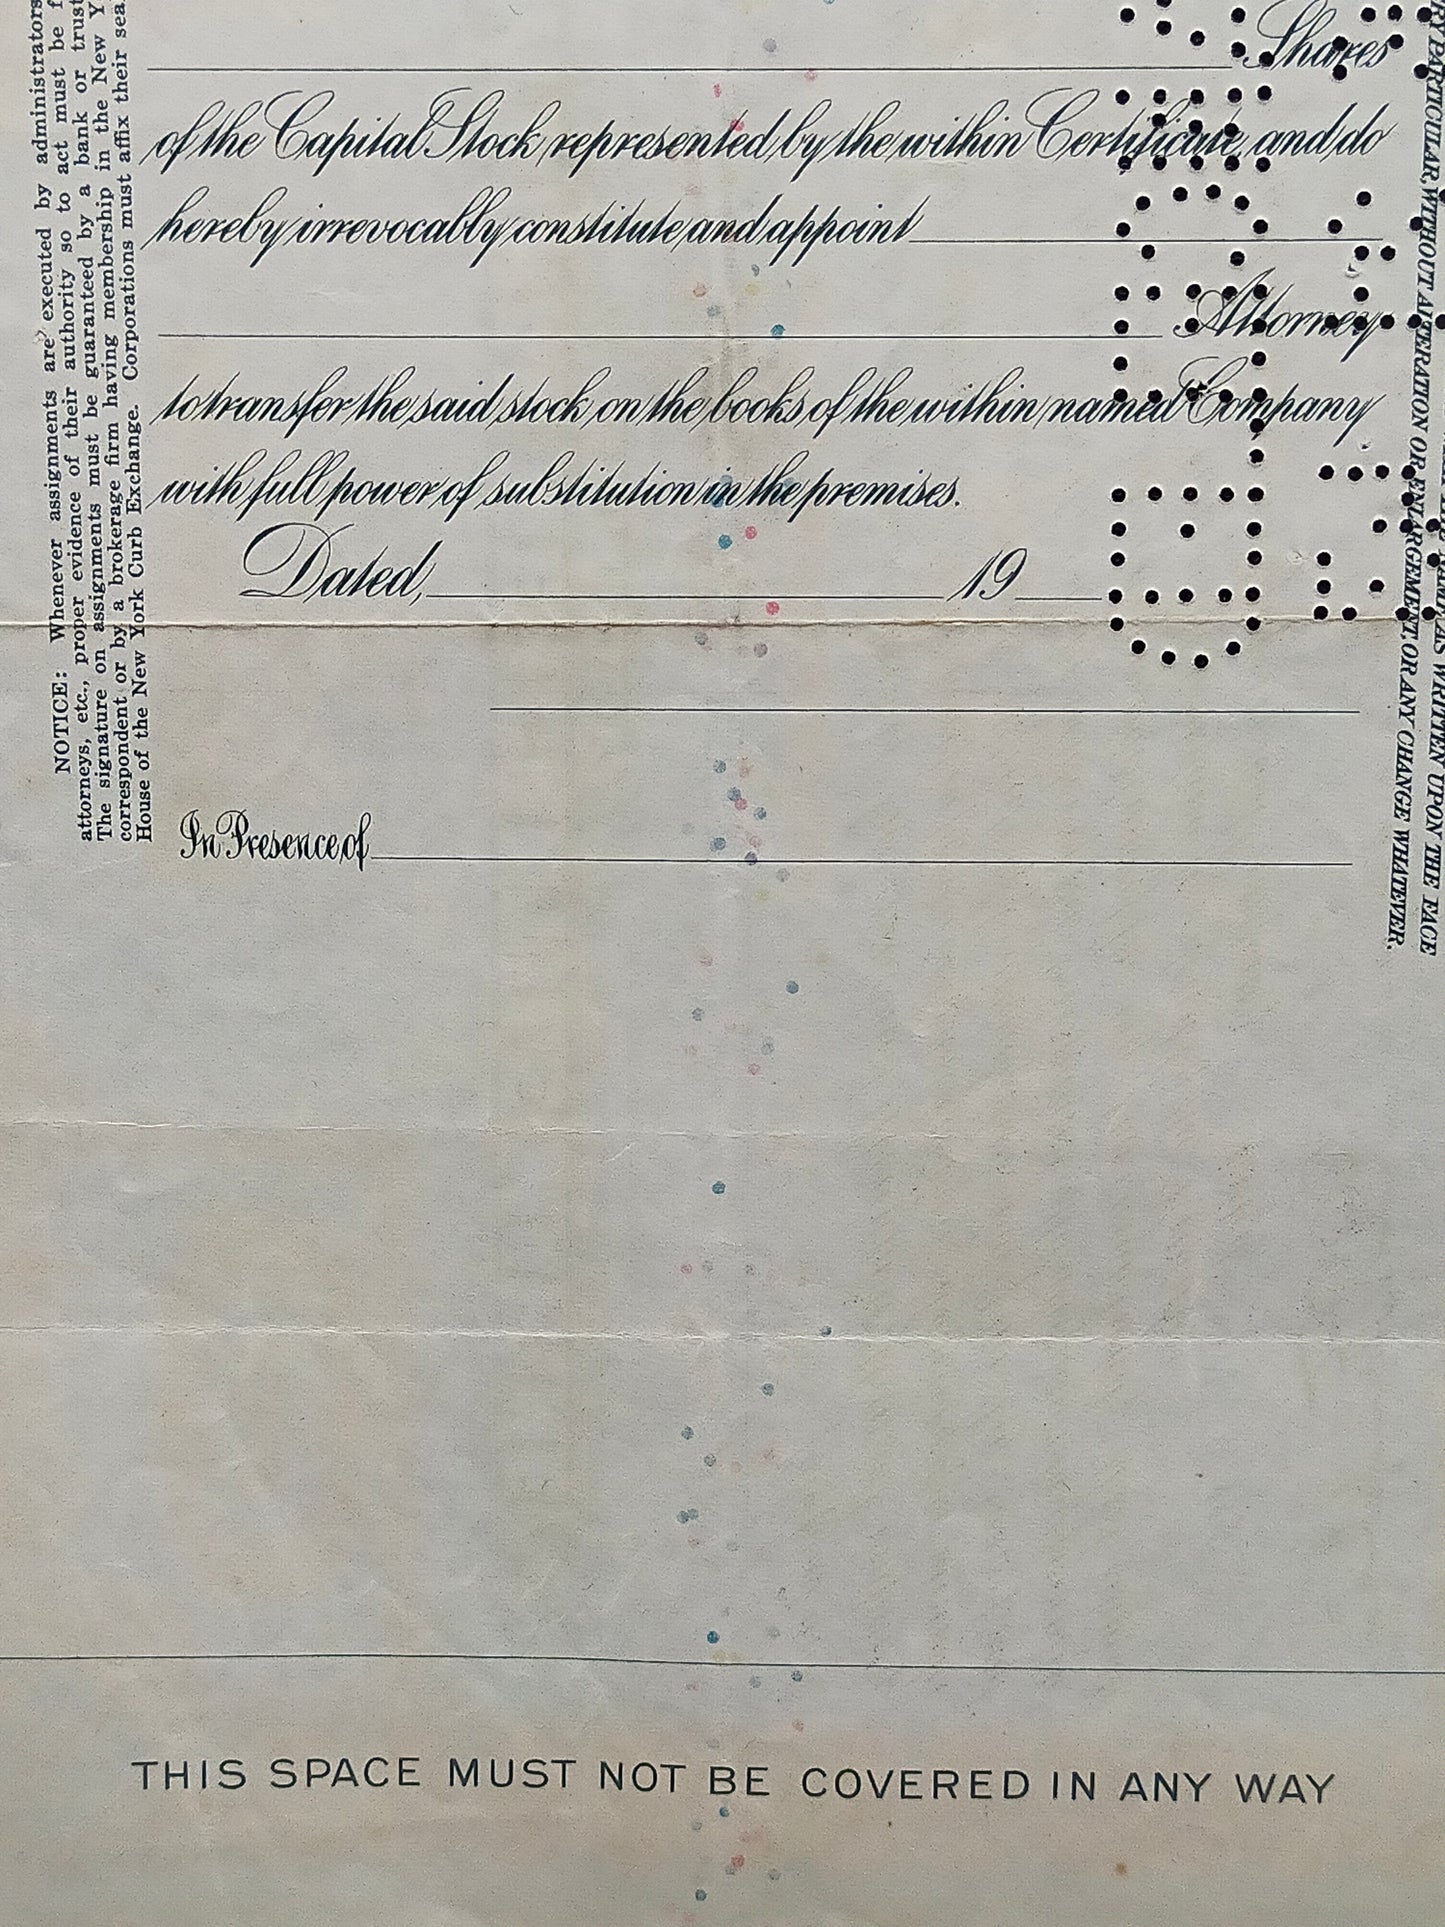 Shares
of the Capital Stock represented by the within Certificate, and do
hereby irrevocably constitute and appoint
Attorney
to transfer the said stock on the books of the within named Company
with full power of substitution in the premises.
Dated, 19
In Presence of
THIS SPACE MUST NOT BE COVERED IN ANY WAY
NOTICE: Whenever assignments are executed by administrators
attorneys, etc., proper evidence of their authority so to act must be
The signature on assignments must be guaranteed by a bank or trust
correspondent or by a brokerage firm having membership in the New
House of the New York Curb Exchange. Corporations must affix their
AS WRITTEN UPON THE FACE
PARTICULAR, WITHOUT ALTERATION OR ENLARGEMENT, OR ANY CHANGE WHATEVER.